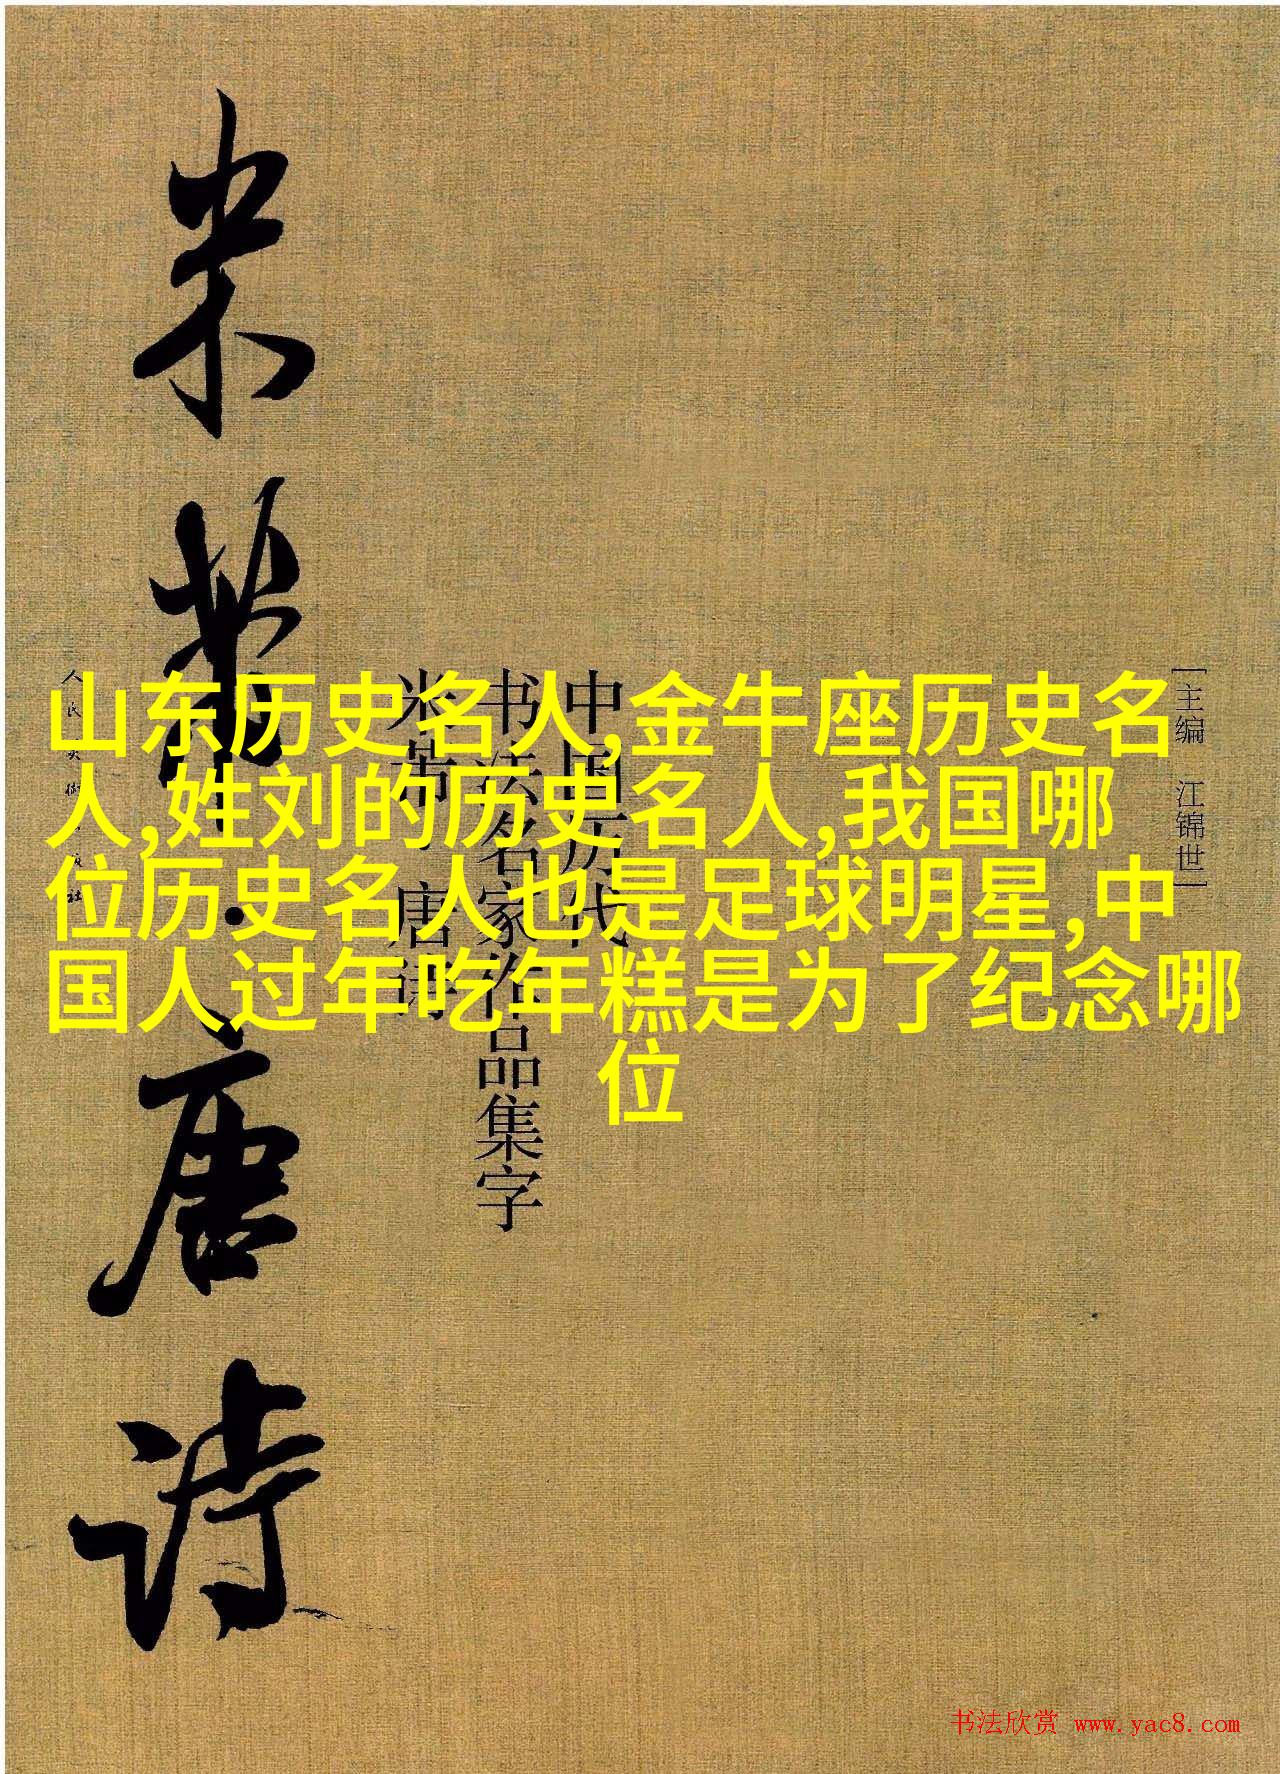 米芾·唐诗
山东历史名人,金牛座历史名
人,姓刘的历史名人,我国哪
位历史名人也是足球明星,中
国人过年吃年糕是为了纪念哪
位
中国历代
书法名家作品集字
米芾·唐诗
[主编 江锦世]
人民美术出版社
书法欣赏 www.yac8.com